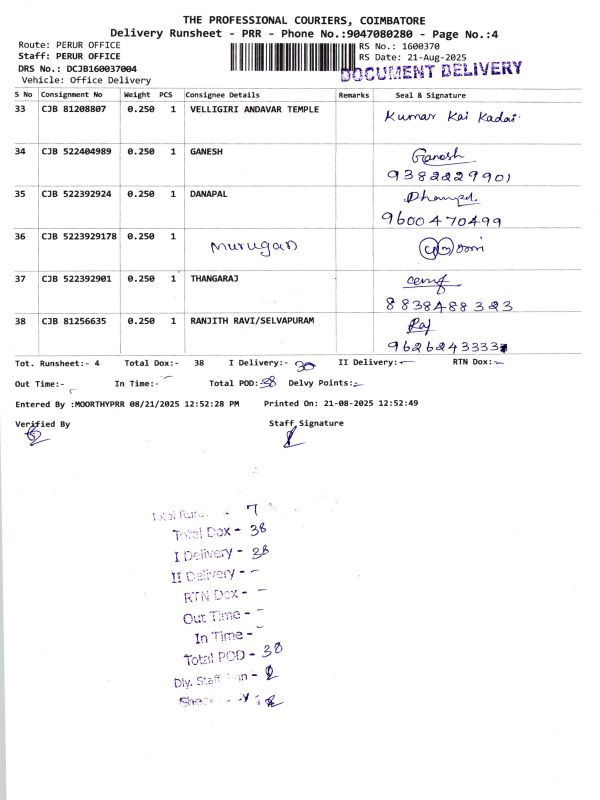 THE PROFESSIONAL COURIERS, COIMBATORE
Delivery Runsheet - PRR - Phone No.:9047080280 - Page No.:4
Route: PERUR OFFICE
RS No.: 1600370
Staff: PERUR OFFICE
RS Date: 21-Aug-2025
DRS No.: DCJB160037004
DOCUMENT DELIVERY
Vehicle: Office Delivery
S No Consignment No Weight PCS Consignee Details Remarks Seal & Signature
33 CJB 81208807 0.250 1 VELLIGIRI ANDAVAR TEMPLE
Kumar Kai Kadai.
34 CJB 522404989 0.250 1 GANESH Ganesh
9382229901
35 CJB 522392924 0.250 1 DANAPAL
9600470499
36 CJB 5223929178 0.250 1 Murugan
37 CJB 522392901 0.250 1 THANGARAJ
8838488323
38 CJB 81256635 0.250 1 RANJITH RAVI/SELVAPURAM Raj
9626243333
Tot. Runsheet:- 4 Total Dox:- 38 I Delivery:- II Delivery:- RTN Dox:-
Out Time:- In Time:- Total POD: 38 Delvy Points:-
Entered By :MOORTHYPRR 08/21/2025 12:52:28 PM Printed On: 21-08-2025 12:52:49
Verified By Staff Signature
Total 7
Total Dox - 38
I Delivery - 38
II Delivery - -
RTN Dox - -
Out Time - -
In Time - -
Total POD - 38
Dly. Staff